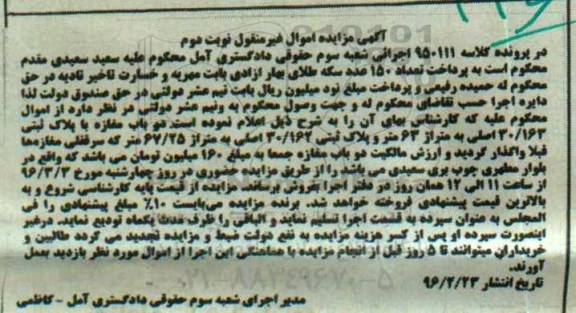 آگهی مزایده اموال غیرمنقول نوبت دوم
در پرونده کلاسه ۹۵۰۱۱۱ اجرائی شعبه سوم حقوقی دادگستری آمل محکوم علیه سعید سعیدی مقدم
محکوم است به پرداخت تعداد ۱۵۰ عدد سکه طلای بهار ازادی بابت مهریه و خسارت تاخیر تادیه در حق
محکوم له حمیده رفیعی و پرداخت مبلغ نود میلیون ریال بابت نیم عشر دولتی در حق صندوق دولت لذا
دایره اجرا حسب تقاضای محکوم له و جهت وصول محکوم به ونیم عشر دولتی در نظر دارد از اموال
محکوم علیه که کارشناس بهای آن را به شرح ذیل اعلام نموده است دو باب مغازه با پلاک ثبتی
۳۰/۱۶۳ اصلی به متراژ ۶۳ متر و پلاک ثبتی ۳۰/۱۶۲ اصلی به متراژ ۶۷/۲۵ متر که سرقفلی مغازه‌ها
قبلا واگذار گردید و ارزش مالکیت دو باب مغازه جمعا به مبلغ ۱۶۰ میلیون تومان می باشد که واقع در
بلوار مطهری چوب بری سعیدی می باشد را از طریق مزایده حضوری در روز چهارشنبه مورخ ۹۶/۳/۳
از ساعت ۱۱ الی ۱۲ همان روز در دفتر اجرا بفروش برساند. مزایده از قیمت پایه کارشناسی شروع و به
بالاترین قیمت پیشنهادی فروخته خواهد شد. برنده مزایده می‌بایست ۱۰٪ مبلغ پیشنهادی را فی
المجلس به عنوان سپرده به قسمت اجرا تسلیم نماید و الباقی را ظرف مدت یکماه تودیع نماید. درغیر
اینصورت سپرده او پس از کسر هزینه مزایده به نفع دولت ضبط و مزایده تجدید می گردد طالبین و
خریداران میتوانند تا ۵ روز قبل از انجام مزایده با هماهنگی این اجرا از اموال مورد نظر بازدید بعمل
آورند.
تاریخ انتشار ۹۶/۲/۲۳
مدیر اجرای شعبه سوم حقوقی دادگستری آمل - کاظمی
۰۲۱-۸۸۳۴۹۶۷۰-۵